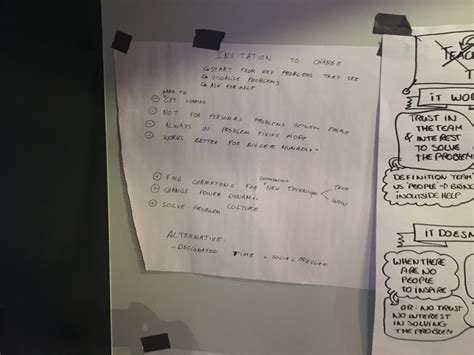 INVITATION TO CHANGE
↳ START FROM KEY PROBLEMS THEY SEE
↳ VISUALISE PROBLEMS
↳ ASK FOR HELP
HARD TO
⊖ GET STARTED
⊖ NOT FOR PERSONAL PROBLEMS BETWEEN PEOPLE
⊖ ALWAYS IN PROBLEM FIXING MODE
⊖ WORKS BETTER FOR MANAGERS?
⊕ FIND CHAMPIONS FOR NEW TECHNIQUE
⊕ CHANGE POWER DYNAMIC
⊕ SOLVE PROBLEM CULTURE
ALTERNATIVE
- DESIGNATED TIME + SOCIAL PRESSURE
TEAC
IT WO
TRUST IN
THE TEAM
& INTEREST
TO SOLVE
THE PROBLEM
DEFINITION TEAM
VS PEOPLE → BRING
IN OUTSIDE HELP
IT DOES
WHEN THERE
ARE NO
PEOPLE
TO INSPIRE
OR: NO TRUST
NO INTEREST
IN SOLVING
THE PROBLEM